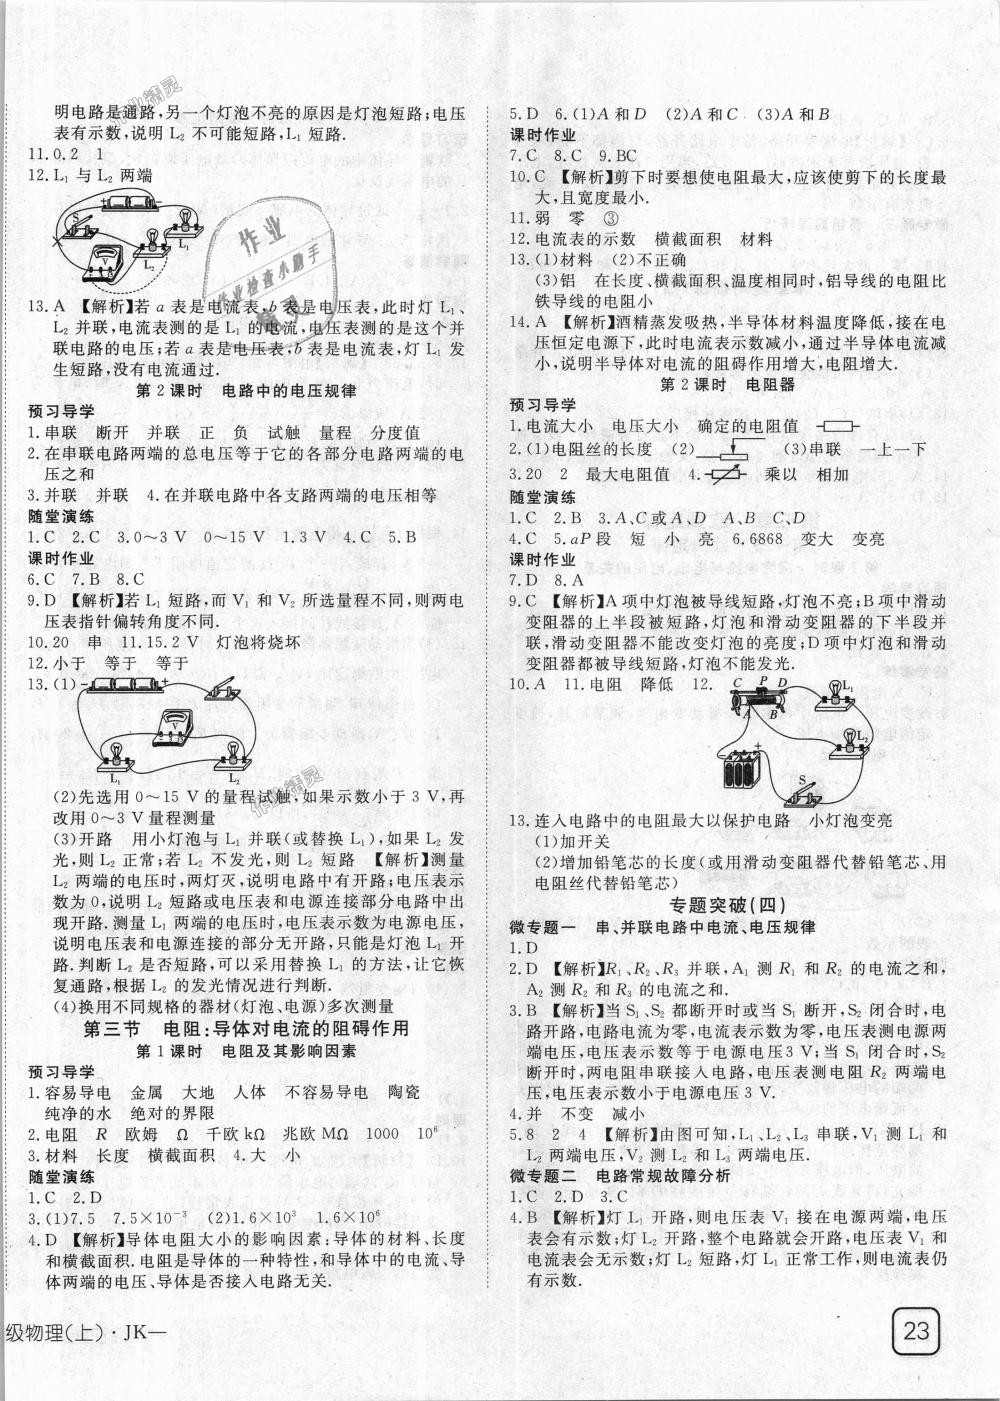 明电路是通路,另一个灯泡不亮的原因是灯泡短路;电压
表有示数,说明 L₂ 不可能短路,L₁ 短路.
11.0.2 1
12.L₁ 与 L₂ 两端
S
L₁
L₂
V
13.A 【解析】若 a 表是电流表、b 表是电压表,此时灯 L₁、
L₂ 并联,电流表测的是 L₁ 的电流,电压表测的是这个并
联电路的电压;若 a 表是电压表,b 表是电流表,灯 L₁ 发
生短路,没有电流通过.
第 2 课时 电路中的电压规律
预习导学
1.串联 断开 并联 正 负 试触 量程 分度值
2.在串联电路两端的总电压等于它的各部分电路两端的电
压之和
3.并联 并联 4.在并联电路中各支路两端的电压相等
随堂演练
1.C 2.C 3.0～3 V 0～15 V 1.3 V 4.C 5.B
课时作业
6.C 7.B 8.C
9.D 【解析】若 L₁ 短路,而 V₁ 和 V₂ 所选量程不同,则两电
压表指针偏转角度不同.
10.20 串 11.15.2 V 灯泡将烧坏
12.小于 等于 等于
13.(1)
V
L₁ L₂
(2)先选用 0～15 V 的量程试触,如果示数小于 3 V,再
改用 0～3 V 量程测量
(3)开路 用小灯泡与 L₁ 并联(或替换 L₁),如果 L₂ 发
光,则 L₂ 正常;若 L₂ 不发光,则 L₂ 短路 【解析】测量
L₂ 两端的电压时,两灯灭,说明电路中有开路;电压表示
数为 0,说明 L₂ 短路或电压表和电源连接部分电路中出
现开路.测量 L₁ 两端的电压时,电压表示数为电源电压,
说明电压表和电源连接的部分无开路,只能是灯泡 L₁ 开
路.判断 L₂ 是否短路,可以采用替换 L₁ 的方法,让它恢
复通路,根据 L₂ 的发光情况进行判断.
(4)换用不同规格的器材(灯泡、电源)多次测量
第三节 电阻:导体对电流的阻碍作用
第 1 课时 电阻及其影响因素
预习导学
1.容易导电 金属 大地 人体 不容易导电 陶瓷
纯净的水 绝对的界限
2.电阻 R 欧姆 Ω 千欧 kΩ 兆欧 MΩ 1000 10⁶
3.材料 长度 横截面积 4.大 小
随堂演练
1.C 2.D
3.(1)7.5 7.5×10⁻³ (2)1.6×10³ 1.6×10⁶
4.D 【解析】导体电阻大小的影响因素:导体的材料、长度
和横截面积.电阻是导体的一种特性,和导体中的电流、导
体两端的电压、导体是否接入电路无关.
级物理(上)·JK—
5.D 6.(1)A 和 D (2)A 和 C (3)A 和 B
课时作业
7.C 8.C 9.BC
10.C 【解析】剪下时要想使电阻最大,应该使剪下的长度最
大,且宽度最小.
11.弱 零 ③
12.电流表的示数 横截面积 材料
13.(1)材料 (2)不正确
(3)铝 在长度、横截面积、温度相同时,铝导线的电阻比
铁导线的电阻小
14.A 【解析】酒精蒸发吸热,半导体材料温度降低,接在电
压恒定电源下,此时电流表示数减小,通过半导体电流减
小,说明半导体对电流的阻碍作用增大,电阻增大.
第 2 课时 电阻器
预习导学
1.电流大小 电压大小 确定的电阻值
2.(1)电阻丝的长度 (2) (3)串联 一上一下
3.20 2 最大电阻值 4. 乘以 相加
随堂演练
1.C 2.B 3.A、C或A、D A、B C、D
4.C 5.aP段 短 小 亮 6.6868 变大 变亮
课时作业
7.D 8.A
9.C 【解析】A 项中灯泡被导线短路,灯泡不亮;B 项中滑动
变阻器的上半段被短路,灯泡和滑动变阻器的下半段并
联,滑动变阻器不能改变灯泡的亮度;D 项中灯泡和滑动
变阻器都被导线短路,灯泡不能发光.
10.A 11.电阻 降低 12.
C P D
A B
L₁
L₂
S
13.连入电路中的电阻最大以保护电路 小灯泡变亮
(1)加开关
(2)增加铅笔芯的长度(或用滑动变阻器代替铅笔芯、用
电阻丝代替铅笔芯)
专题突破(四)
微专题一 串、并联电路中电流、电压规律
1.D
2.D 【解析】R₁、R₂、R₃ 并联,A₁ 测 R₁ 和 R₂ 的电流之和,
A₂ 测 R₂ 和 R₃ 的电流之和.
3.B 【解析】当 S₁、S₂ 都断开时或当 S₁ 断开,S₂ 闭合时,电
路开路,电路电流为零,电流表示数为零,电压表测电源两
端电压,电压表示数等于电源电压 3 V;当 S₁ 闭合时,S₂
断开时,两电阻串联接入电路,电压表测电阻 R₂ 两端电
压,电压表示数小于电源电压 3 V.
4.并 不变 减小
5.8 2 4 【解析】由图可知,L₁、L₂、L₃ 串联,V₁ 测 L₁ 和
L₂ 两端电压,V₂ 测 L₂ 和 L₃ 两端的电压.
微专题二 电路常规故障分析
1.C 2.D 3.C
4.B 【解析】灯 L₁ 开路,则电压表 V₁ 接在电源两端,电压
表会有示数;灯 L₂ 开路,整个电路就会开路,电压表 V₁ 和
电流表会无示数;灯 L₂ 短路,灯 L₁ 正常工作,则电流表仍
有示数.
23
作业
作业检查小助手
精灵
作业精灵
作业精灵